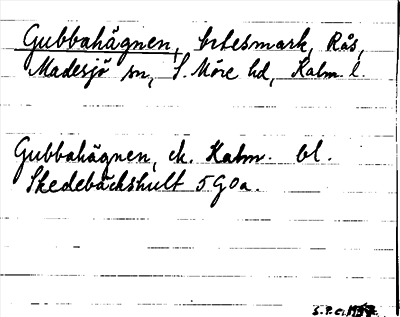 Gubbahägnen, betesmark, Rås,
Madesjö sn, S. Möre hd, Kalm. l.
Gubbahägnen, ek. Kalm. bl.
Skedebäckshult 5 G 0 a.